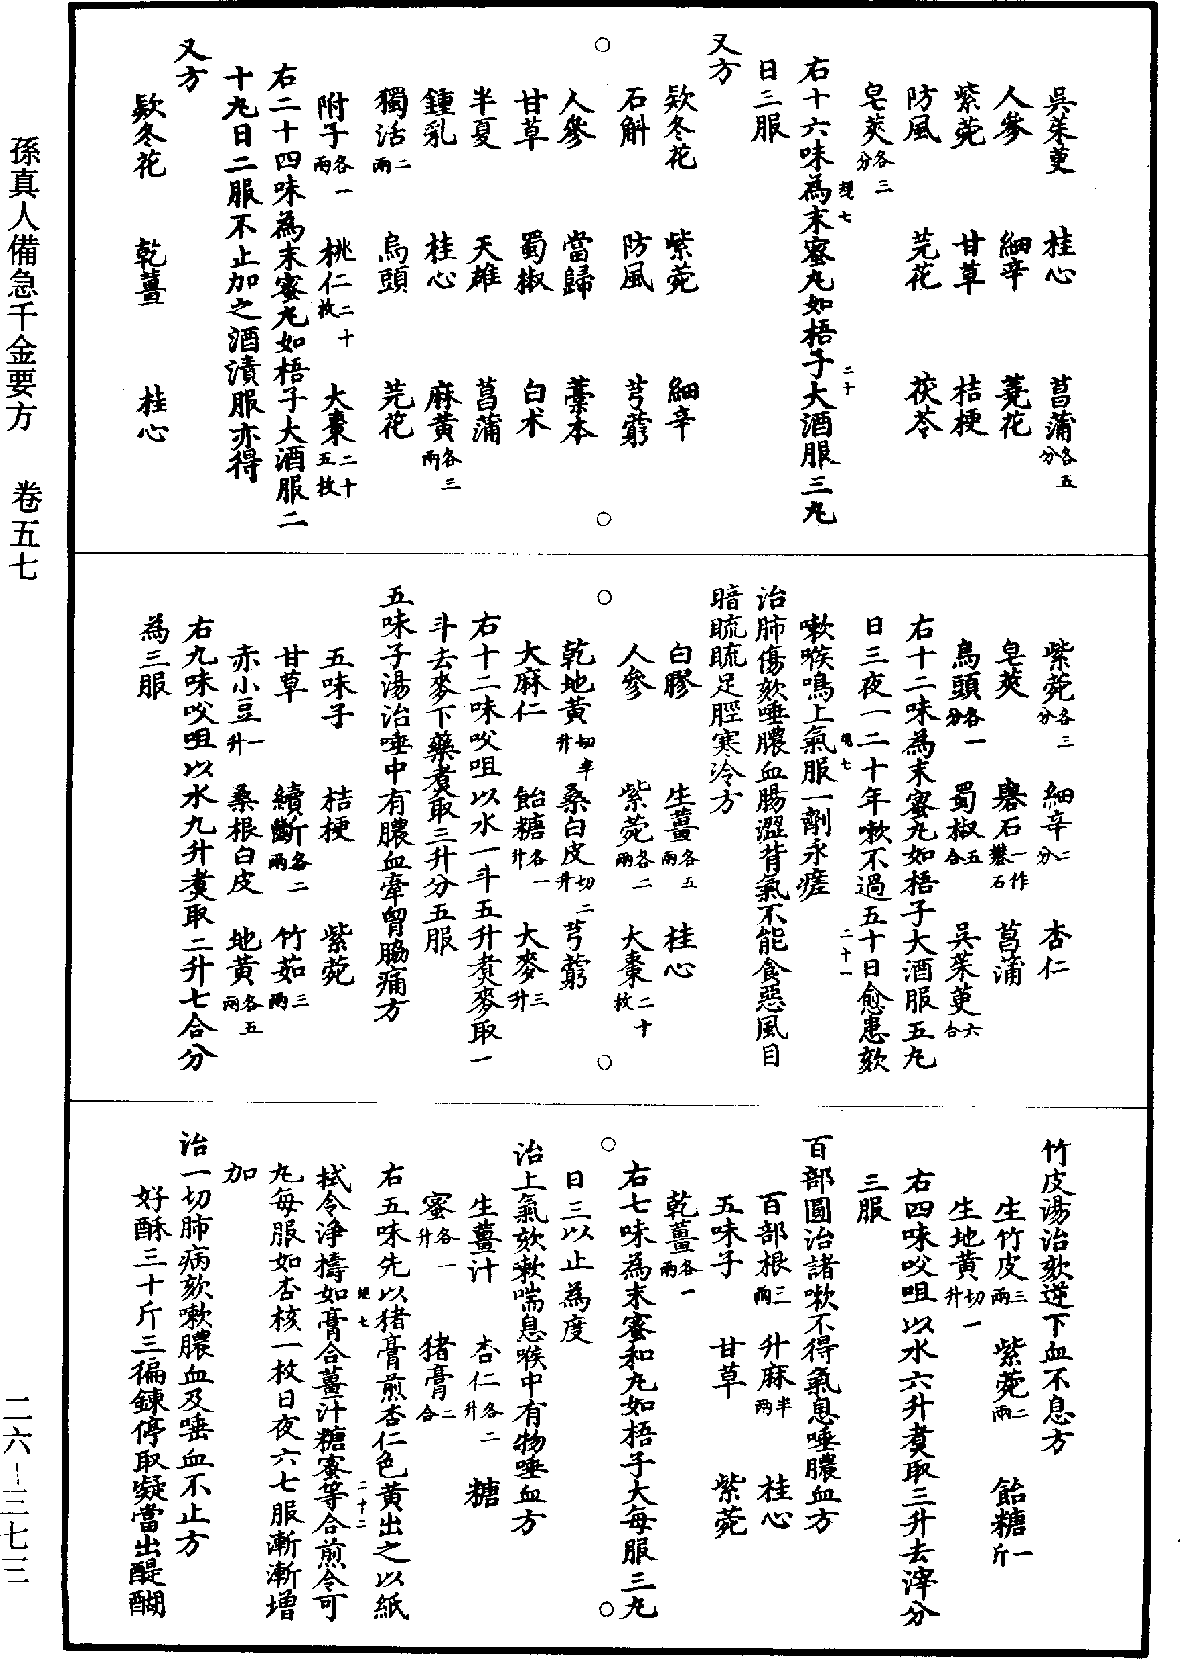 吳茱萸 桂心 菖蒲各五分
人參 細辛 菱花
紫菀 甘草 桔梗
防風 芫花 茯苓
皂莢各三分
右十六味為末蜜丸如梧子大酒服三丸
日三服
又方
欵冬花 紫菀 細辛
石斛 防風 芎藭
人參 當歸 藁本
甘草 蜀椒 白术
半夏 天雄 菖蒲
鍾乳 桂心 麻黃各三兩
獨活二兩 烏頭 芫花
附子各一兩 桃仁二十枚 大棗二十五枚
右二十四味為末蜜丸如梧子大酒服二
十丸日二服不止加之酒漬服亦得
又方
欵冬花 乾薑 桂心
紫菀各三分 細辛二分 杏仁
皂莢 礜石一作礬石 菖蒲
烏頭各一分 蜀椒五合 吳茱萸六合
右十二味為末蜜丸如梧子大酒服五丸
日三夜一二十年嗽不過五十日愈患欬
嗽喉鳴上氣服一劑永瘥
治肺傷欬唾膿血腸澀背氣不能食惡風目
暗䀮䀮足脛寒泠方
白膠 生薑各五兩 桂心
人參 紫菀各二兩 大棗二十枚
乾地黃切半升 桑白皮切二升 芎藭
大麻仁 飴糖各一升 大麥三升
右十二味㕮咀以水一斗五升煑麥取一
斗去麥下藥煑取三升分五服
五味子湯治唾中有膿血牽胷脇痛方
五味子 桔梗 紫菀
甘草 續斷各二兩 竹茹三兩
赤小豆一升 桑根白皮 地黃各五兩
右九味㕮咀以水九升煑取二升七合分
為三服
竹皮湯治欬逆下血不息方
生竹皮三兩 紫菀二兩 飴糖一斤
生地黃切一升
右四味㕮咀以水六升煑取三升去滓分
三服
百部圓治諸嗽不得氣息唾膿血方
百部根三兩 升麻半兩 桂心
五味子 甘草 紫菀
乾薑各一兩
右七味為末蜜和丸如梧子大每服三丸
日三以止為度
治上氣欬嗽喘息喉中有物唾血方
生薑汁 杏仁各二升 糖
蜜各一升 猪膏二合
右五味先以猪膏煎杏仁色黃出之以紙
拭令淨擣如膏合薑汁糖蜜等合煎令可
丸每服如杏核一枚日夜六七服漸漸增
加
治一切肺病欬嗽膿血及唾血不止方
好酥三十斤三徧鍊停取凝當出醍醐
孫真人備急千金要方 卷五七
二六-三七三